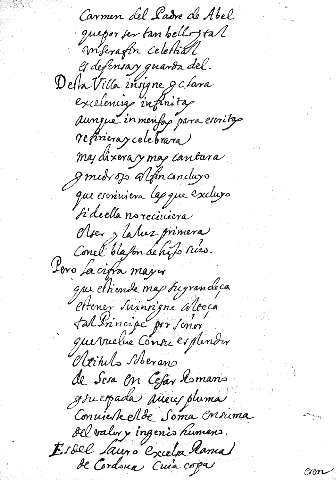 Carmen del Padre de Abel
que por ser tan bello y tal
un serafin celestial
es defensa y guarda del.
Desta Villa insigne y clara
excelencias infinitas
aunque inmensas para escritas
refiriera y celebrara
mas dixera y mas cantara
y medroso al fin concluyo
que escriuiera las que excluyo
si de ella no reciuiera
el ser y la luz primera
con el blason de hijo suyo.
Pero la cifra mayor
que estiende mas su grandeça
es tener su insigne alteça
tal Principe por señor
que vuelue con su esplendor
el titulo soberano
de Sesa en Cesar Romano
y su espada pluma
conuierte el de Soma en suma
del valor y ingenio humano.
Es del Lauro excelsa Rama
de Cordoua Cuia copa